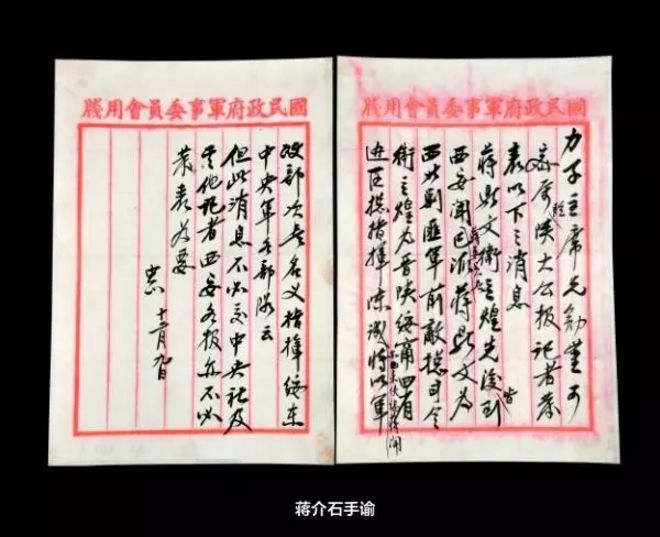 國民政府軍事委員會用牋
力子主席兄勛鑒可
密囑駐陝大公報記者發
表以下之消息
蔣鼎文衛立煌先後皆到
西安聞蔣委員長已派蔣鼎文為
西北剿匪軍前敵總司令
衛立煌為晉陝綏甯四省
邊區總指揮陳誠亦來陝謁蔣聞將以軍
國民政府軍事委員會用牋
政部次長名義指揮綏東
中央軍各部隊云
但此消息不必交中央社及
其他記者西安各報亦不必
發表為要
中正 十二月九日
蒋介石手谕